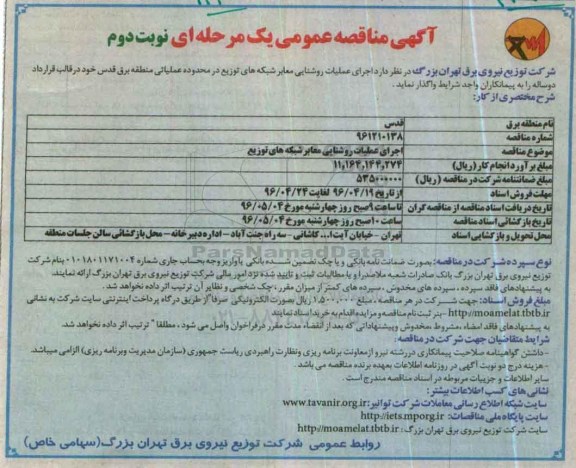 آگهی مناقصه عمومی یک مرحله ای نوبت دوم
شرکت توزیع نیروی برق تهران بزرگ در نظر دارد اجرای عملیات روشنایی معابر شبکه های توزیع در محدوده عملیاتی منطقه برق قدس خود در قالب قرارداد
دوساله را به پیمانکاران واجد شرایط واگذار نماید .
شرح مختصری از کار:
نام منطقه برق قدس
شماره مناقصه ۹۶۱۲۱۰۱۳۸
موضوع مناقصه اجرای عملیات روشنایی معابر شبکه های توزیع
مبلغ برآورد انجام کار (ریال) ۱۱,۱۶۴,۱۴۴,۲۷۴
مبلغ ضمانتنامه شرکت در مناقصه (ریال) ۵۳۵۰۰۰۰۰۰
مهلت فروش اسناد از تاریخ ۹۶/۰۴/۱۹ لغایت ۹۶/۰۴/۲۴
تاریخ دریافت اسناد مناقصه از مناقصه گران تا ساعت ۹ صبح روز چهارشنبه مورخ ۹۶/۰۵/۰۴
تاریخ بازگشائی اسناد مناقصه ساعت ۱۰ صبح روز چهارشنبه مورخ ۹۶/۰۵/۰۴
محل تحویل و بازگشایی اسناد تهران - خیابان آیت ا... کاشانی - سه راه جنت آباد - اداره دبیرخانه - محل بازگشائی سالن جلسات منطقه
ParsNamadData
نوع سپرده شرکت در مناقصه: بصورت ضمانت نامه بانکی و یا چک تضمین شده بانکی یا واریز وجه بحساب جاری شماره ۰۱۰۱۸۰۱۱۷۱۰۰۴ بنام شرکت
توزیع نیروی برق تهران بزرگ بانک صادرات شعبه ملاصدرا و یا مطالبات ثبت و تایید شده نزد امور مالی شرکت توزیع نیروی برق تهران بزرگ ارائه نمایند.
به پیشنهادهای فاقد سپرده ، سپرده های مخدوش ، سپرده های کمتر از میزان مقرر، چک شخصی و نظایر آن ترتیب اثر داده نخواهد شد.
مبلغ فروش اسناد: جهت شرکت در هر مناقصه ، مبلغ ۱,۵۰۰,۰۰۰ ریال بصورت الکترونیکی صرفا از طریق درگاه پرداخت اینترنتی سایت شرکت به نشانی
http://moamelat.tbtb.ir - بنر ثبت نام مناقصه و مزایده اقدام به خرید اسناد نمایند
به پیشنهادهای فاقد امضاء ،مشروط ،مخدوش وپیشنهاداتی که بعد از انقضاء مدت مقرر در فراخوان واصل می شود ، مطلقا " ترتیب اثر داده نخواهد شد.
شرایط متقاضیان جهت شرکت در مناقصه:
- داشتن گواهینامه صلاحیت پیمانکاری در رشته نیرو از معاونت برنامه ریزی ونظارت راهبردی ریاست جمهوری (سازمان مدیریت وبرنامه ریزی) الزامی میباشد.
- هزینه درج دو نوبت آگهی در روزنامه اطلاعات بعهده برنده مناقصه می باشد.
سایر اطلاعات و جزییات مربوطه در اسناد مناقصه مندرج است.
نشانی های کسب اطلاعات بیشتر:
سایت شبکه اطلاع رسانی معاملات شرکت توانیر: www.tavanir.org.ir
سایت پایگاه ملی مناقصات: http://iets.mporg.ir
سایت شرکت توزیع نیروی برق تهران بزرگ: http://moamelat.tbtb.ir
روابط عمومی شرکت توزیع نیروی برق تهران بزرگ (سهامی خاص)